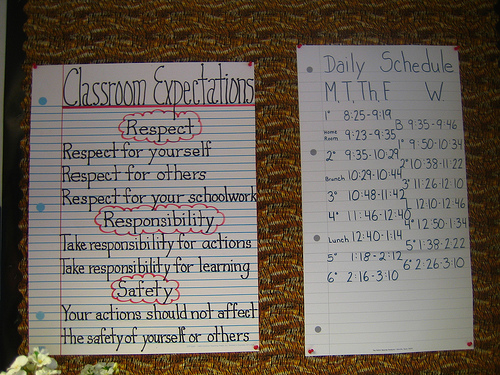 Classroom Expectations
Respect
Respect for yourself
Respect for others
Respect for your schoolwork
Responsibility
Take responsibility for actions
Take responsibility for learning
Safety
Your actions should not affect
the safety of yourself or others
Daily Schedule
M, T, Th, F W
1° 8:25-9:19
Home Room 9:23-9:35
2° 9:35-10:29
Brunch 10:29-10:44
3° 10:48-11:42
4° 11:46-12:40
Lunch 12:40-1:14
5° 1:18-2:12
6° 2:16-3:10
B 9:35-9:46
1° 9:50-10:34
2° 10:38-11:22
3° 11:26-12:10
L 12:10-12:46
4° 12:50-1:34
5° 1:38-2:22
6° 2:26-3:10